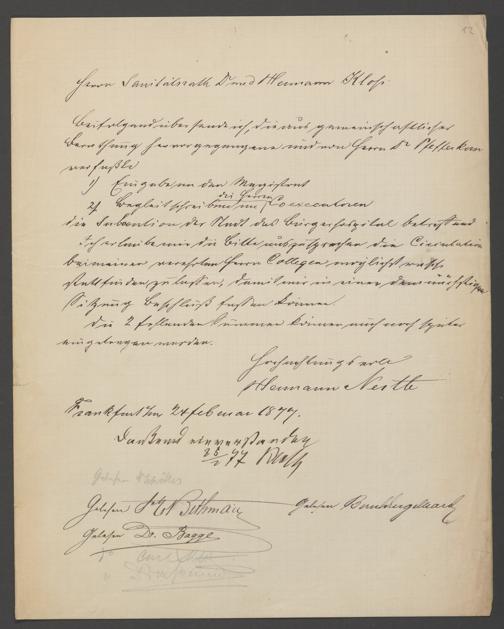 12
Herrn Sanitätsrath Dr med Hermann Kloß.
Beifolgend übersende ich, die aus gemeinschaftlicher
Berathung hervorgegangene und von Herrn Dr
verfaßte
1) Eingabe an den Magistrat
2) Begleitschreiben an die Herren
die Subvention der Stadt des Bürgerhospital betreffend
Ich erlaube mir die Bitte auszusprechen die Circulation
bei meinen verehrten Herrn Collegen möglichst rasch
stattfinden zu lassen, damit wir in einer demnächstigen
Sitzung Beschluß fassen können.
Die 2 fehlenden Summen können auch noch später
eingetragen werden.
Hochachtungsvoll
Hermann Nestle
Frankfurt 24 Februar 1877.
Dankend einverstanden
77
Gelesen
Gelesen Bethmann
Gelesen
Gelesen Dr. Bagge
"
"